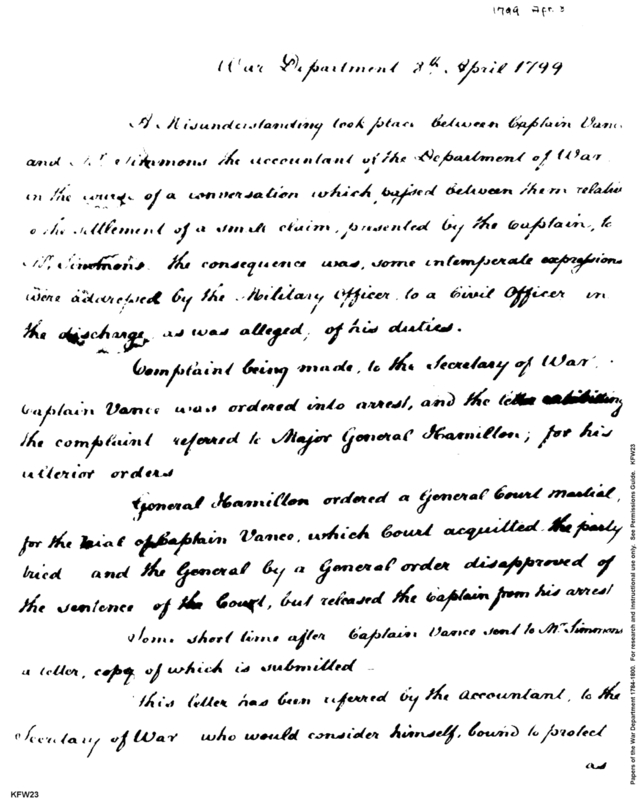 1799 Apr. 3
War Department 3th. April 1799
A Misunderstanding took place between Captain Vance
and Mr. Simmons the accountant of the Department of War
in the course of a conversation which passed between them relative
to the settlement of a small claim, presented by the Captain, to
Mr. Simmons. the consequence was, some intemperate expressions
were addressed by the Military Officer, to a Civil Officer in
the discharge, as was alleged, of his duties.
Complaint being made, to the Secretary of War
Captain Vance was ordered into arrest, and the letter exhibiting
the complaint referred to Major General Hamilton; for his
ulterior orders
General Hamilton ordered a General Court Martial,
for the trial of Captain Vance, which Court acquitted the party
tried and the General by a General order disapproved of
the sentence of the Court, but released the Captain from his arrest
Some short time after Captain Vance sent to Mr. Simmons
a letter, copy of which is submitted
This letter has been referred by the Accountant, to the
Secretary of War who would consider himself, bound to protect
as
KFW23
Papers of the War Department 1784-1800. For research and instructional use only. See Permissions Guide. KFW23